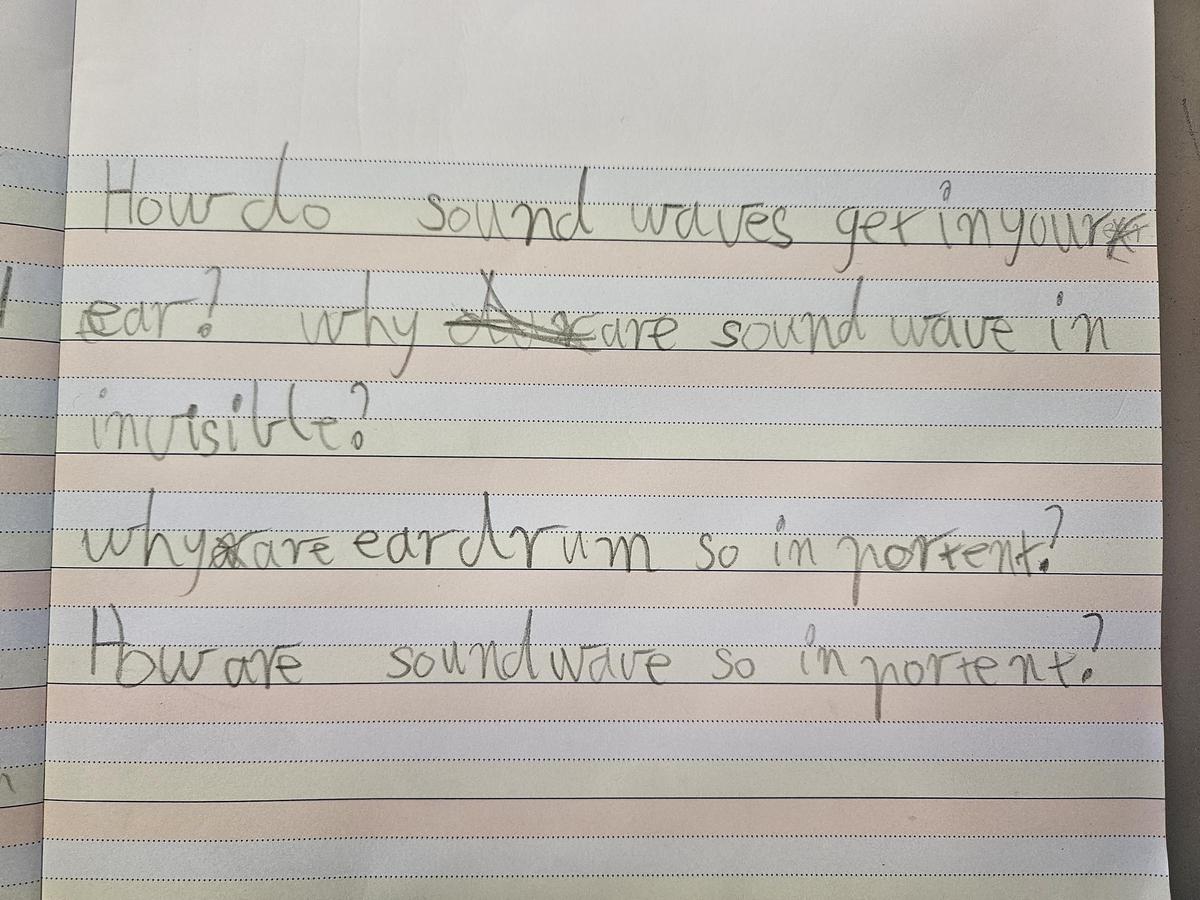 How do sound waves get in your
ear? why are sound wave in
invisible?
why are ear drum so in portent?
How are sound wave so in portent?